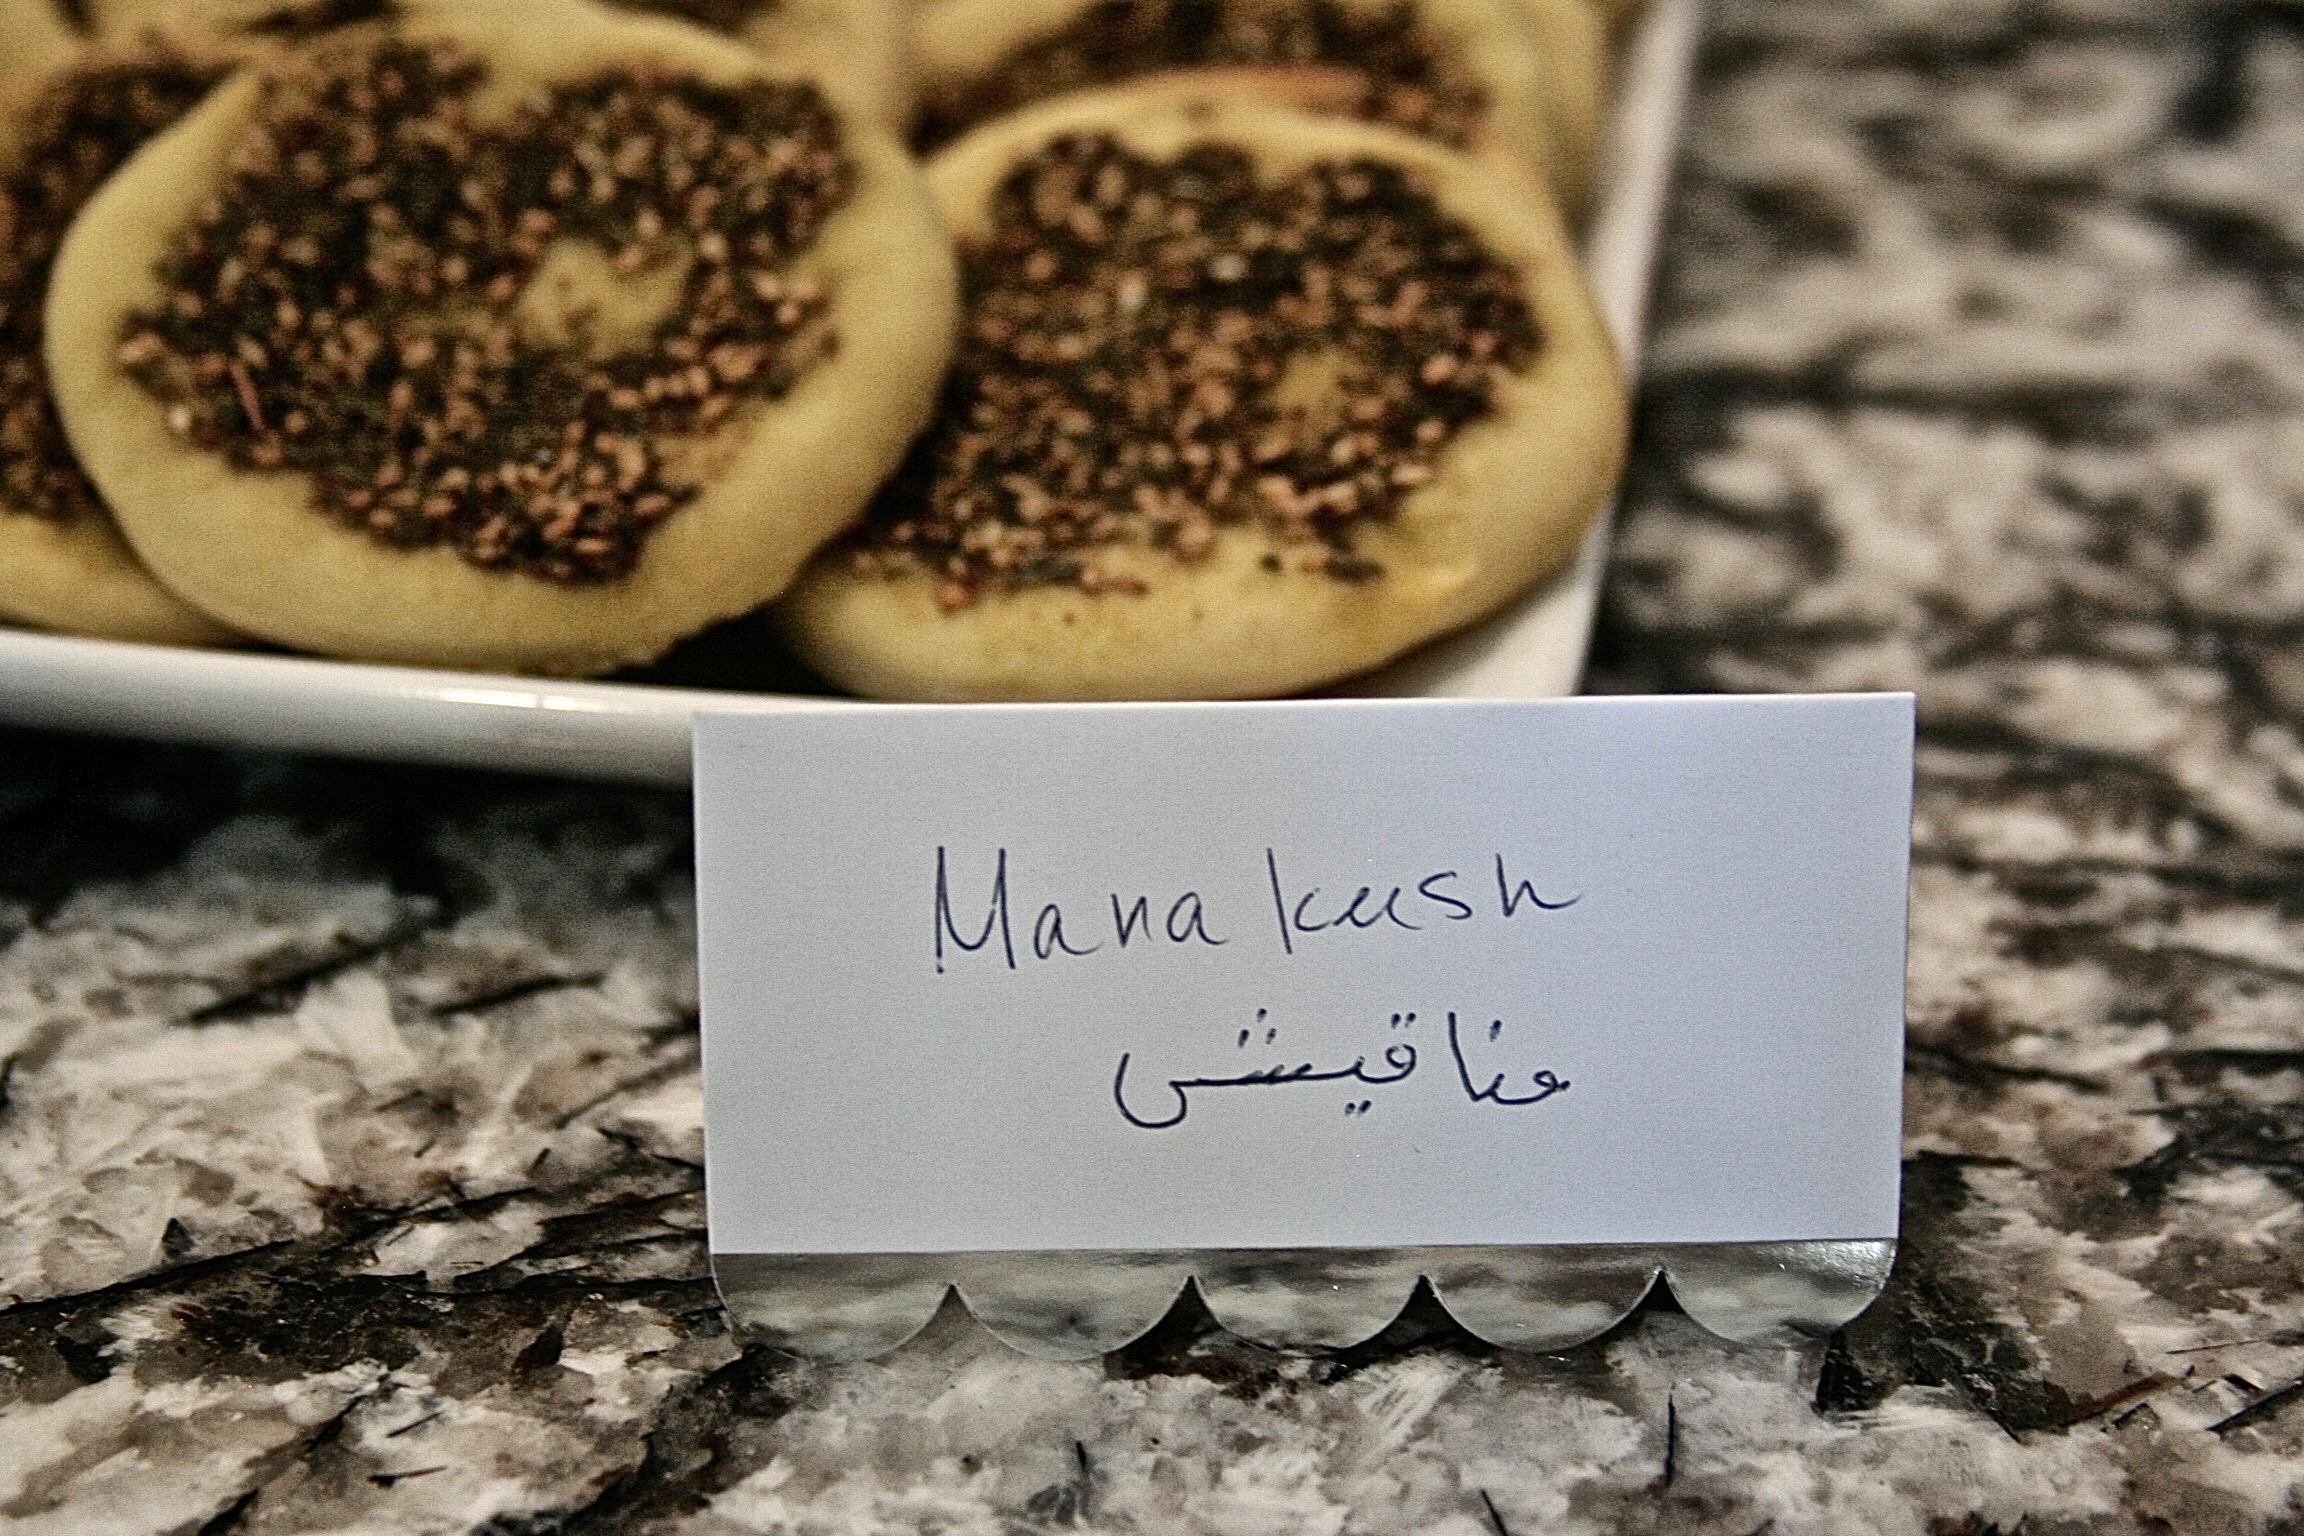 Manakush
مناقيش